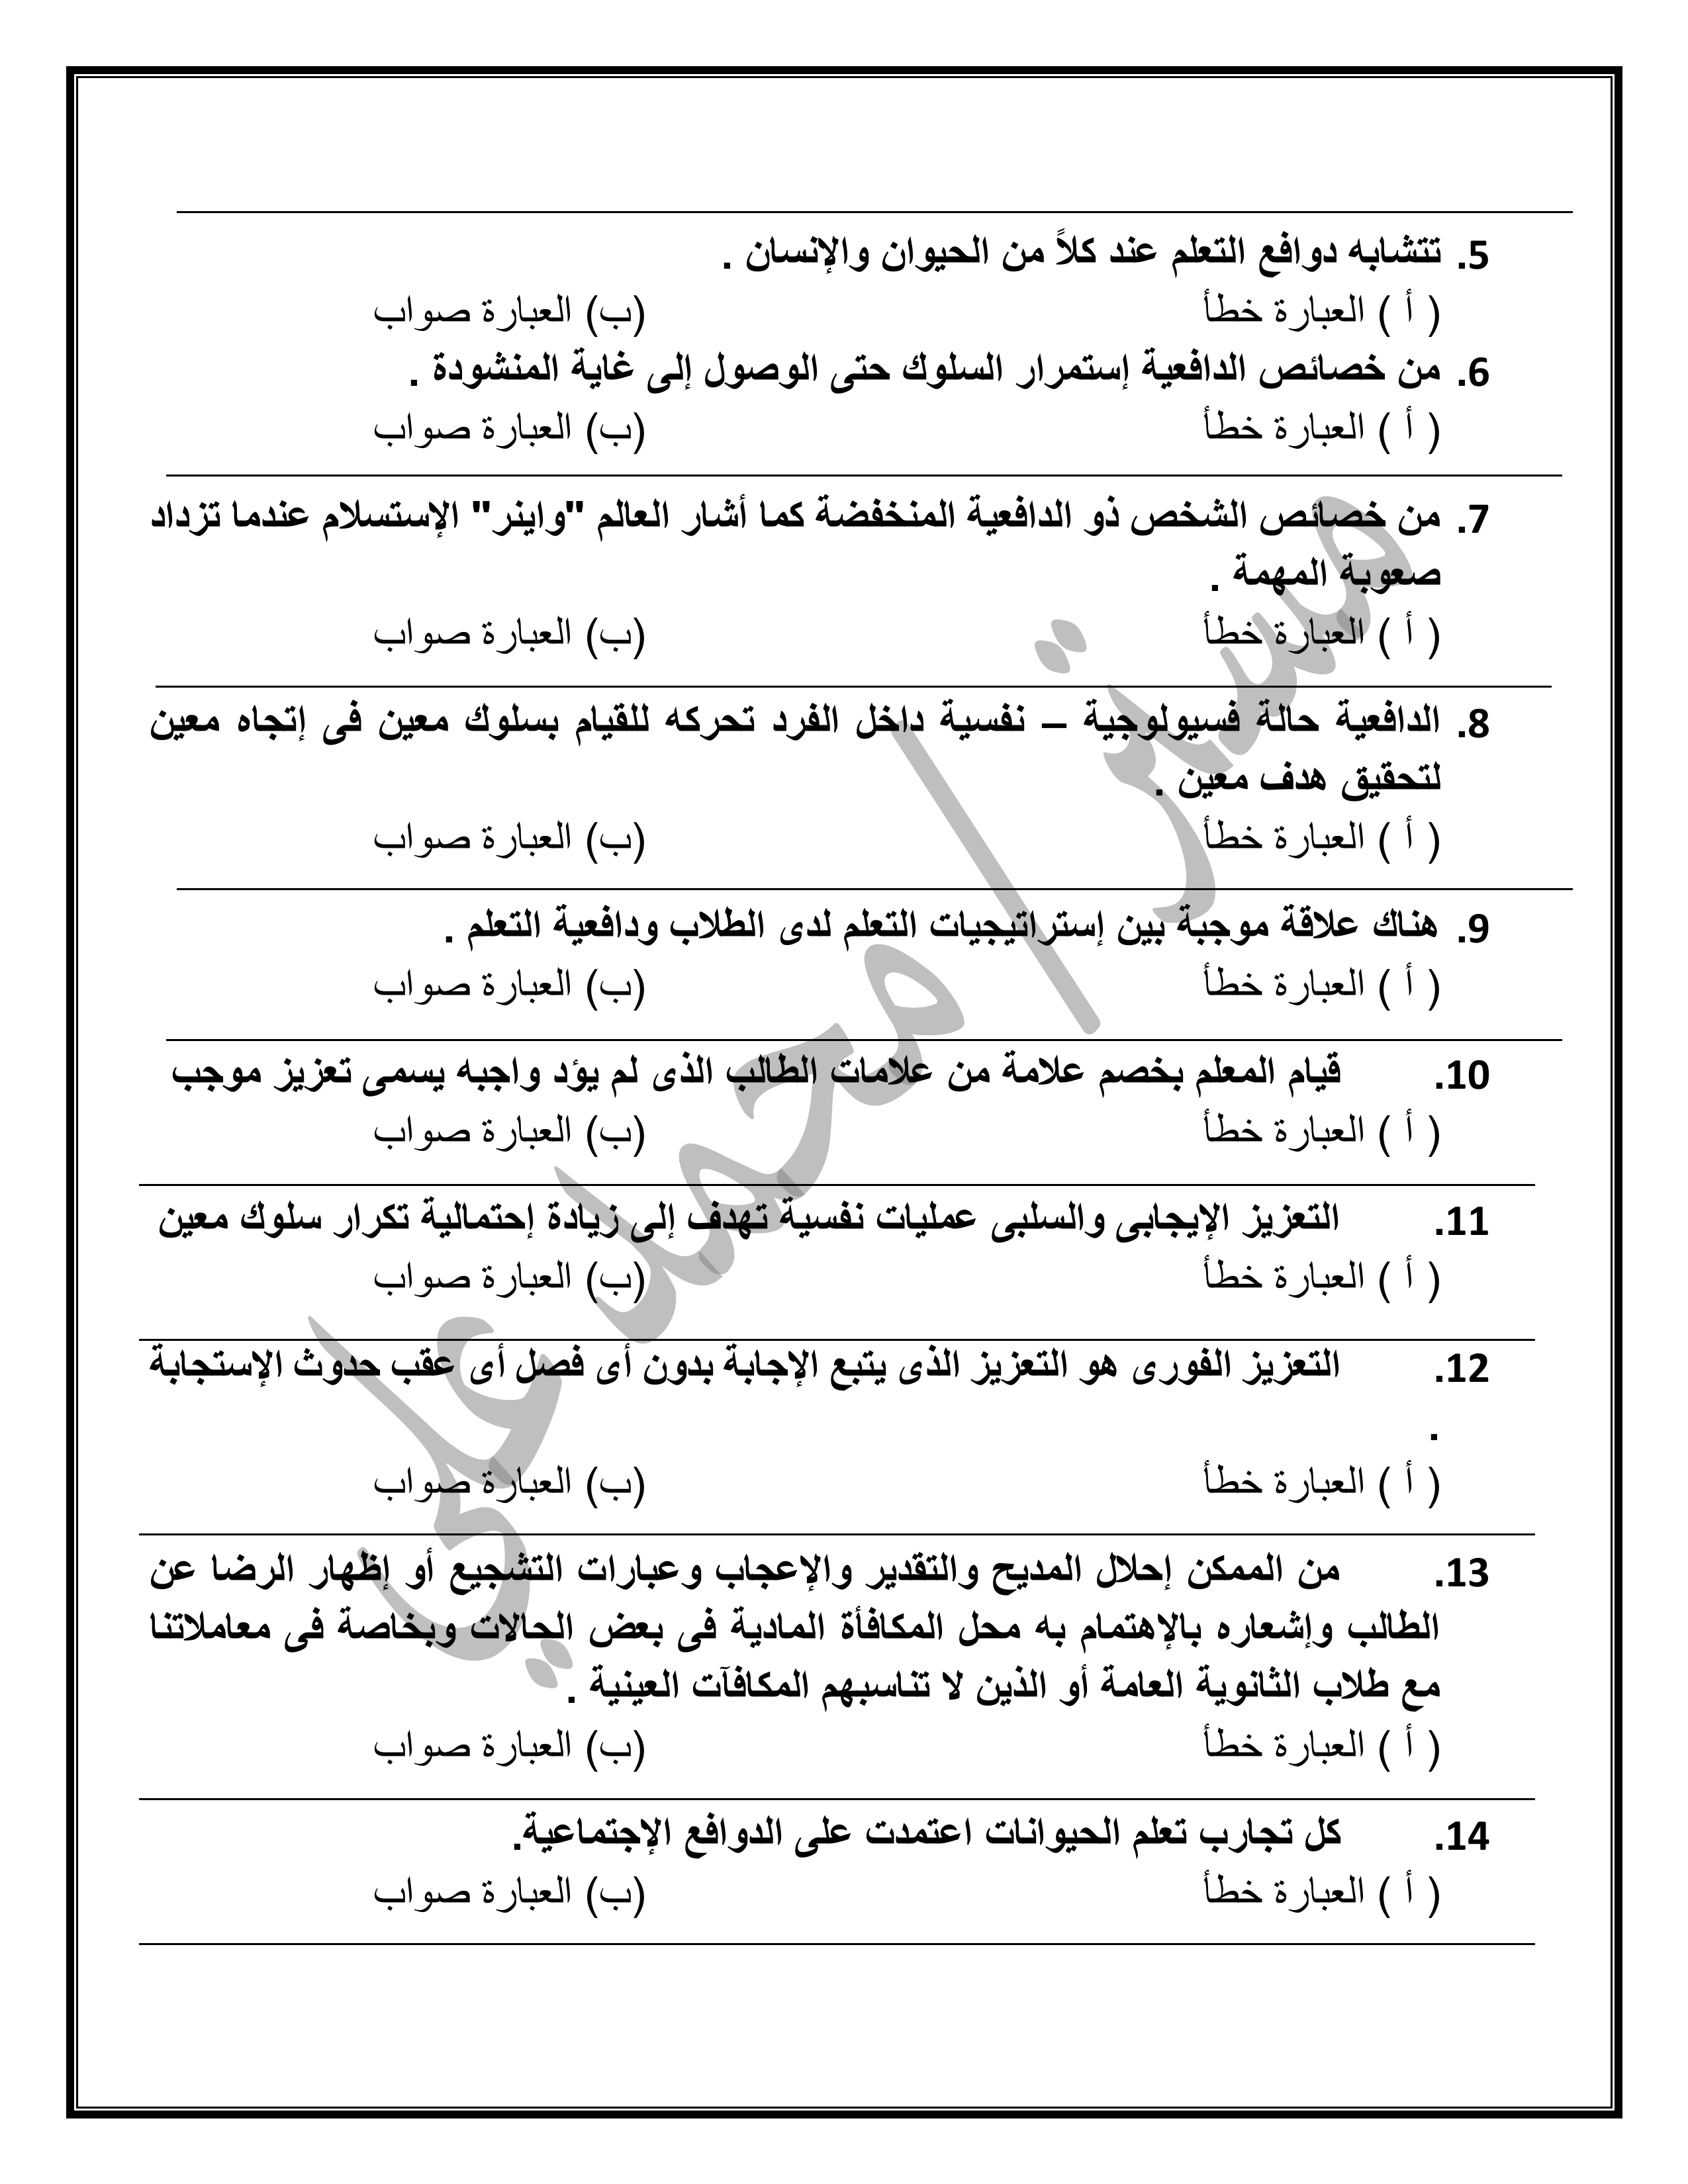 5. تتشابه دوافع التعلم عند كلاً من الحيوان والإنسان .
( أ ) العبارة خطأ (ب) العبارة صواب
6. من خصائص الدافعية إستمرار السلوك حتى الوصول إلى غاية المنشودة .
( أ ) العبارة خطأ (ب) العبارة صواب
7. من خصائص الشخص ذو الدافعية المنخفضة كما أشار العالم "واينر" الإستسلام عندما تزداد
صعوبة المهمة .
( أ ) العبارة خطأ (ب) العبارة صواب
8. الدافعية حالة فسيولوجية – نفسية داخل الفرد تحركه للقيام بسلوك معين فى إتجاه معين
لتحقيق هدف معين .
( أ ) العبارة خطأ (ب) العبارة صواب
9. هناك علاقة موجبة بين إستراتيجيات التعلم لدى الطلاب ودافعية التعلم .
( أ ) العبارة خطأ (ب) العبارة صواب
10. قيام المعلم بخصم علامة من علامات الطالب الذى لم يؤد واجبه يسمى تعزيز موجب
( أ ) العبارة خطأ (ب) العبارة صواب
11. التعزيز الإيجابى والسلبى عمليات نفسية تهدف إلى زيادة إحتمالية تكرار سلوك معين
( أ ) العبارة خطأ (ب) العبارة صواب
12. التعزيز الفورى هو التعزيز الذى يتبع الإجابة بدون أى فصل أى عقب حدوث الإستجابة
.
( أ ) العبارة خطأ (ب) العبارة صواب
13. من الممكن إحلال المديح والتقدير والإعجاب وعبارات التشجيع أو إظهار الرضا عن
الطالب وإشعاره بالإهتمام به محل المكافأة المادية فى بعض الحالات وبخاصة فى معاملاتنا
مع طلاب الثانوية العامة أو الذين لا تناسبهم المكافآت العينية .
( أ ) العبارة خطأ (ب) العبارة صواب
14. كل تجارب تعلم الحيوانات اعتمدت على الدوافع الإجتماعية.
( أ ) العبارة خطأ (ب) العبارة صواب
مستر/محمد علي